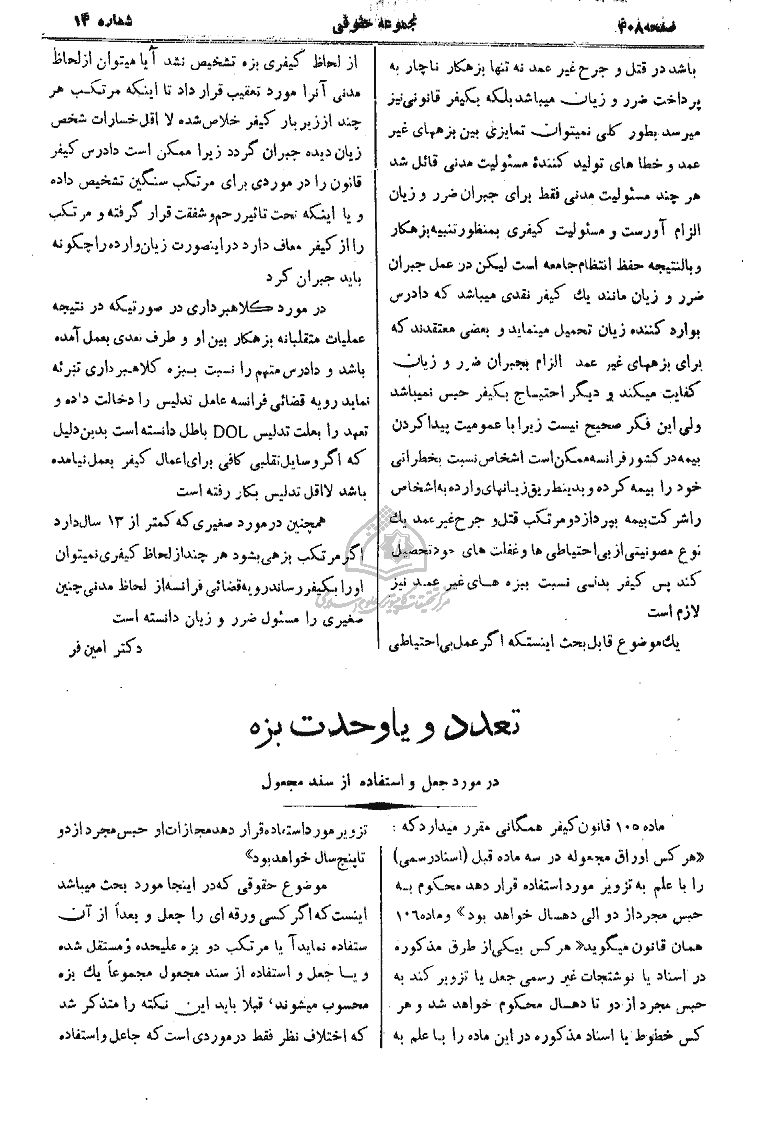 صفحه ۴۰۸
مجموعه حقوقی
شماره ۱۴
باشد در قتل و جرح غیر عمد نه تنها بزهکار ناچار به
پرداخت ضرر و زیان میباشد بلکه بکیفر قانونی نیز
میرسد بطور کلی نمیتوان تمایزی بین بزههای غیر
عمد و خطا های تولید کنندۀ مسئولیت مدنی قائل شد
هر چند مسئولیت مدنی فقط برای جبران ضرر و زیان
الزام آورست و مسئولیت کیفری بمنظور تنبیه بزهکار
و بالنتیجه حفظ انتظام جامعه است لیکن در عمل جبران
ضرر و زیان مانند یك کیفر نقدی میباشد که دادرس
بوارد کننده زیان تحمیل مینماید و بعضی معتقدند که
برای بزههای غیر عمد الزام بجبران ضرر و زیان
کفایت میکند و دیگر احتیاج بکیفر حبس نمیباشد
ولی این فکر صحیح نیست زیرا با عمومیت پیدا کردن
بیمه در کشور فرانسه ممکن است اشخاص نسبت بخطراتی
خود را بیمه کرده و بدینطریق زیانهای وارده به اشخاص
را شرکت بیمه بپردازد و مرتکب قتل و جرح غیر عمد یك
نوع مصونیتی از بی احتیاطی ها و غفلت های خود تحصیل
کند پس کیفر بدنی نسبت ببزه های غیر عمد نیز
لازم است
یك موضوع قابل بحث اینستکه اگر عمل بی احتیاطی
از لحاظ کیفری بزه تشخیص نشد آیا میتوان از لحاظ
مدنی آنرا مورد تعقیب قرار داد تا اینکه مرتکب هر
چند از زیر بار کیفر خلاص شده لا اقل خسارات شخص
زیان دیده جبران گردد زیرا ممکن است دادرس کیفر
قانون را در موردی برای مرتکب سنگین تشخیص داده
و یا اینکه تحت تاثیر رحم و شفقت قرار گرفته و مرتکب
را از کیفر معاف دارد در اینصورت زیان وارده را چگونه
باید جبران کرد
در مورد کلاهبرداری در صورتیکه در نتیجه
عملیات متقلبانه بزهکار بین او و طرف تعدی بعمل آمده
باشد و دادرس متهم را نسبت ببزه کلاهبرداری تبرئه
نماید رویه قضائی فرانسه عامل تدلیس را دخالت داده و
تعهد را بعلت تدلیس DOL باطل دانسته است بدین دلیل
که اگر وسایل تقلبی کافی برای اعمال کیفر بعمل نیامده
باشد لااقل تدلیس بکار رفته است
همچنین در مورد صغیری که کمتر از ۱۳ سال دارد
اگر مرتکب بزهی بشود هر چند از لحاظ کیفری نمیتوان
او را بکیفر رساند رویه قضائی فرانسه از لحاظ مدنی چنین
صغیری را مسئول ضرر و زیان دانسته است
دکتر امین فر
تعدد و یا وحدت بزه
در مورد جعل و استفاده از سند مجعول
ماده ۱۰۵ قانون کیفر همگانی مقرر میدارد که :
«هر کس اوراق مجعوله در سه ماده قبل (اسناد رسمی)
را با علم به تزویر مورد استفاده قرار دهد محکوم به
حبس مجرد از دو الی ده سال خواهد بود» و ماده ۱۰۶
همان قانون میگوید «هر کس بیکی از طرق مذکوره
در اسناد یا نوشتجات غیر رسمی جعل یا تزویر کند به
حبس مجرد از دو تا ده سال محکوم خواهد شد و هر
کس خطوط یا اسناد مذکوره در این ماده را با علم به
تزویر مورد استفاده قرار دهد مجازات او حبس مجرد از دو
تا پنج سال خواهد بود»
موضوع حقوقی که در اینجا مورد بحث میباشد
اینست که اگر کسی ورقه ای را جعل و بعداً از آن
ستفاده نماید آیا مرتکب دو بزه علیحده و مستقل شده
و یا جعل و استفاده از سند مجعول مجموعاً یك بزه
محسوب میشوند، قبلا باید این نکته را متذکر شد
که اختلاف نظر فقط در موردی است که جاعل و استفاده